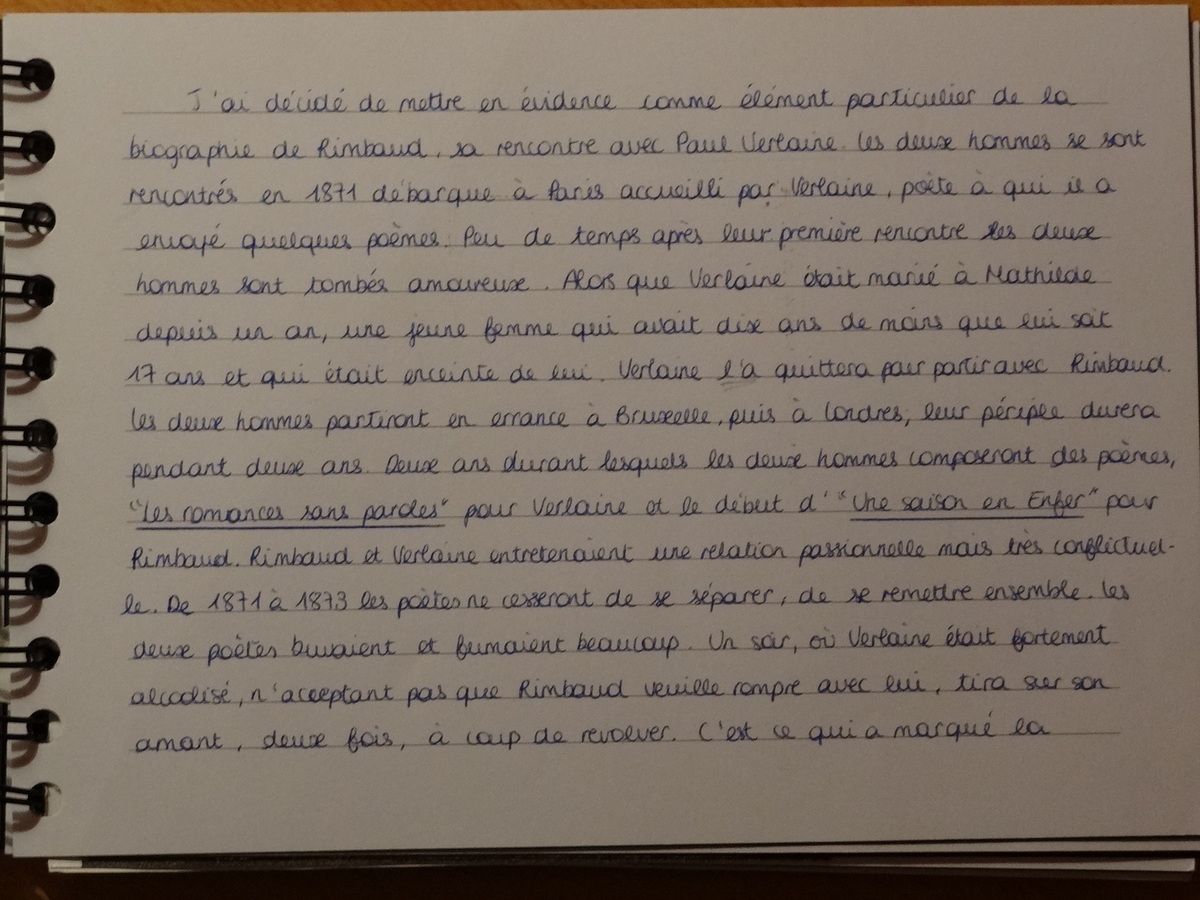 J'ai décidé de mettre en évidence comme élément particulier de la
biographie de Rimbaud, sa rencontre avec Paul Verlaine. Les deux hommes se sont
rencontrés en 1871 débarque à Paris accueilli par Verlaine, poète à qui il a
envoyé quelques poèmes. Peu de temps après leur première rencontre les deux
hommes sont tombés amoureux. Alors que Verlaine était marié à Mathilde
depuis un an, une jeune femme qui avait dix ans de moins que lui soit
17 ans et qui était enceinte de lui. Verlaine l'a quittera pour partir avec Rimbaud.
Les deux hommes partiront en errance à Bruxelle, puis à Londres, leur péripée durera
pendant deux ans. Deux ans durant lesquels les deux hommes composeront des poèmes,
"Les romances sans paroles" pour Verlaine et le début d'"Une saison en Enfer" pour
Rimbaud. Rimbaud et Verlaine entretenaient une relation passionnelle mais très conflictuel-
le. De 1871 à 1873 les poètes ne cesseront de se séparer, de se remettre ensemble. Les
deux poètes buvaient et fumaient beaucoup. Un soir, où Verlaine était fortement
alcoolisé, n'acceptant pas que Rimbaud veuille rompre avec lui, tira sur son
amant, deux fois, à coup de revolver. C'est ce qui a marqué la